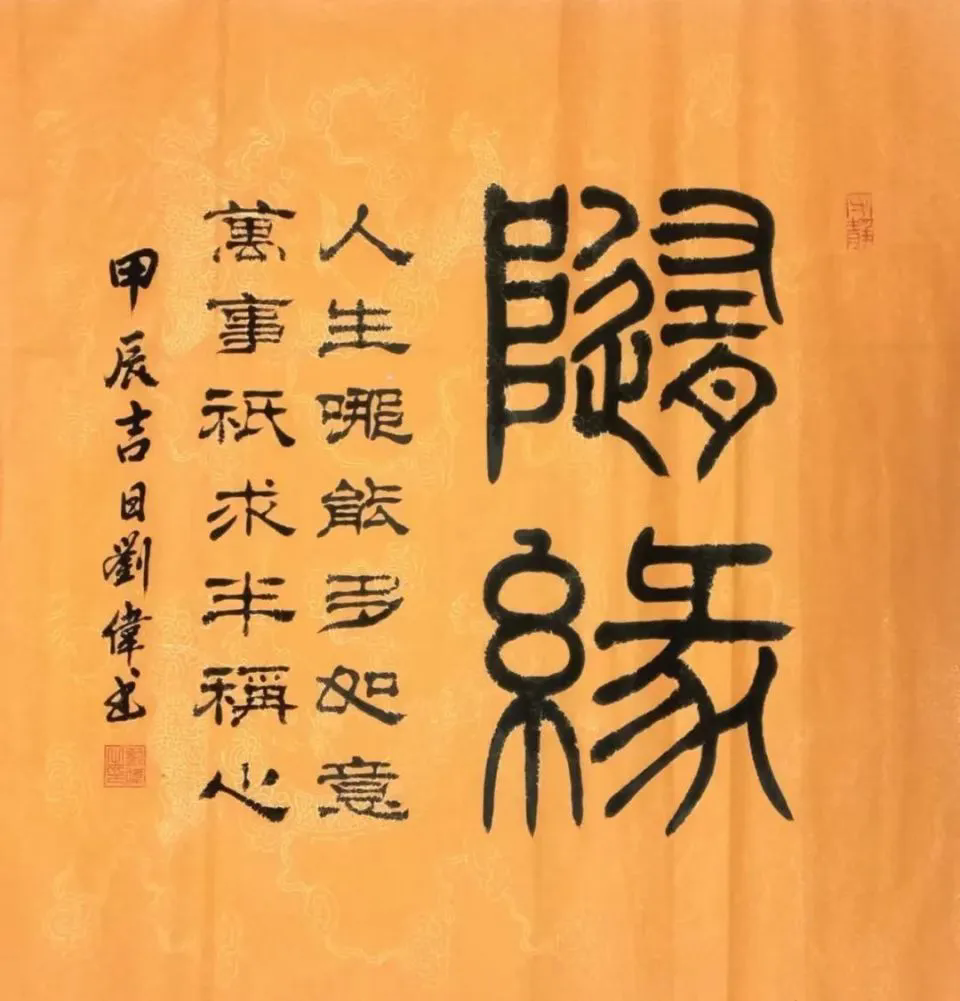 隨緣
人生哪能多如意
萬事祇求半稱心
甲辰吉日劉偉書